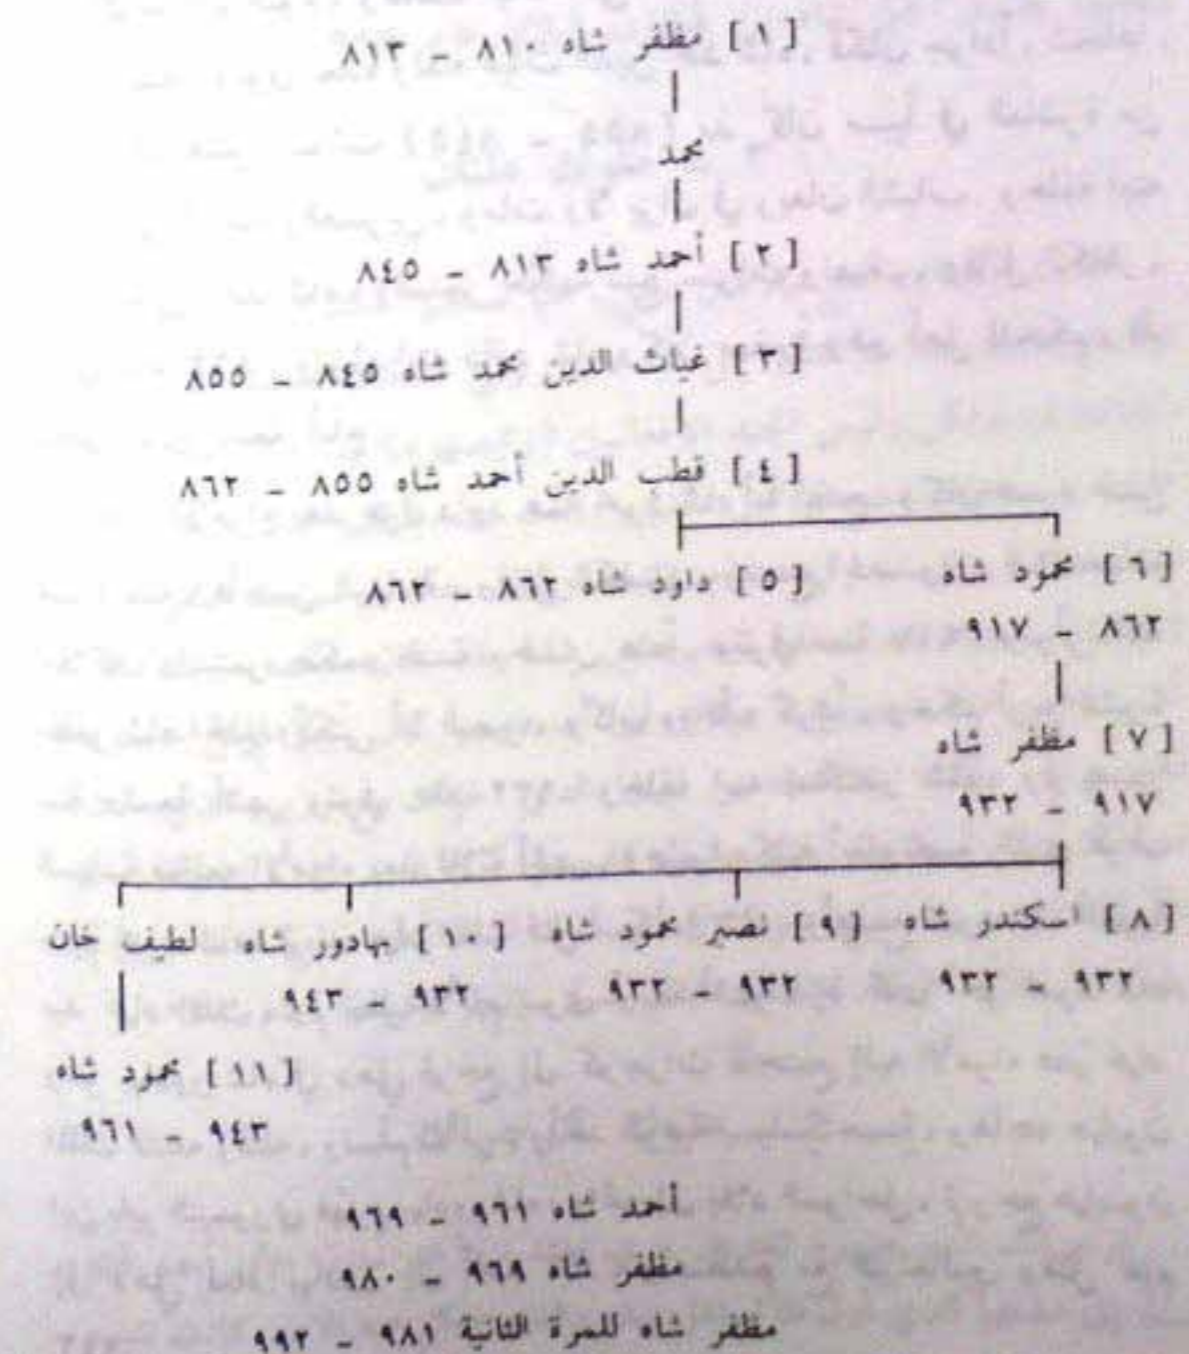 [ ١ ] مظفر شاه ٨١٠ - ٨١٣
محمد
[ ٢ ] أحمد شاه ٨١٣ - ٨٤٥
[ ٣ ] غياث الدين محمد شاه ٨٤٥ - ٨٥٥
[ ٤ ] قطب الدين أحمد شاه ٨٥٥ - ٨٦٢
[ ٦ ] محمود شاه [ ٥ ] داود شاه ٨٦٢ - ٨٦٢
٨٦٢ - ٩١٧
[ ٧ ] مظفر شاه
٩١٧ - ٩٣٢
[ ٨ ] اسكندر شاه [ ٩ ] نصير محمود شاه [ ١٠ ] بهادور شاه لطيف خان
٩٣٢ - ٩٣٢ ٩٣٢ - ٩٣٢ ٩٣٢ - ٩٤٣
[ ١١ ] محمود شاه
٩٤٣ - ٩٦١
أحمد شاه ٩٦١ - ٩٦٩
مظفر شاه ٩٦٩ - ٩٨٠
مظفر شاه للمرة الثانية ٩٨١ - ٩٩٢